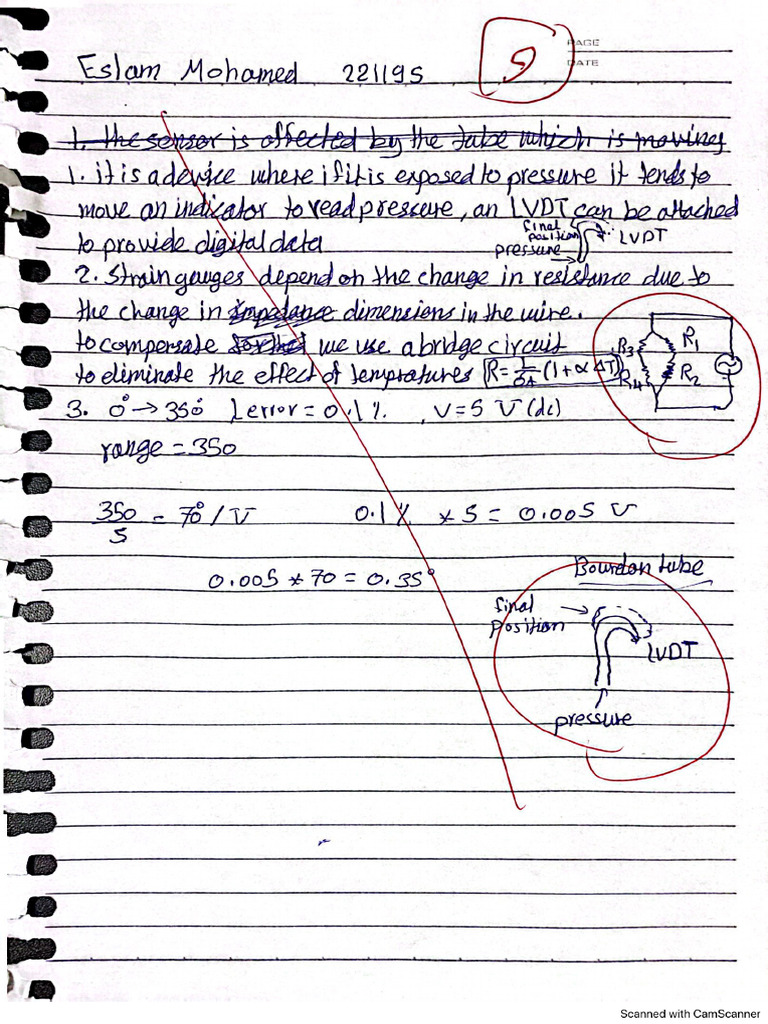 PAGE
DATE
Eslam Mohamed 221195
9
1. the sensor is affected by the tube which is moving
1. it is a device where if it is exposed to pressure it tends to
move an indicator to read pressure, an LVDT can be attached
to provide digital data
final
position
LVDT
pressure
2. Strain gauges depend on the change in resistance due to
the change in impedance dimensions in the wire.
to compensate we use a bridge circuit
to eliminate the effect of tempratures R = (1+α ΔT)
R3 R1
R4 R2
3. 0° → 350° Lerror = 0.1 %. V = 5 V (dc)
range = 350
350/5 = 70°/V 0.1 % * 5 = 0.005 V
0.005 * 70 = 0.35°
Bourdon tube
final
position
LVDT
pressure
Scanned with CamScanner